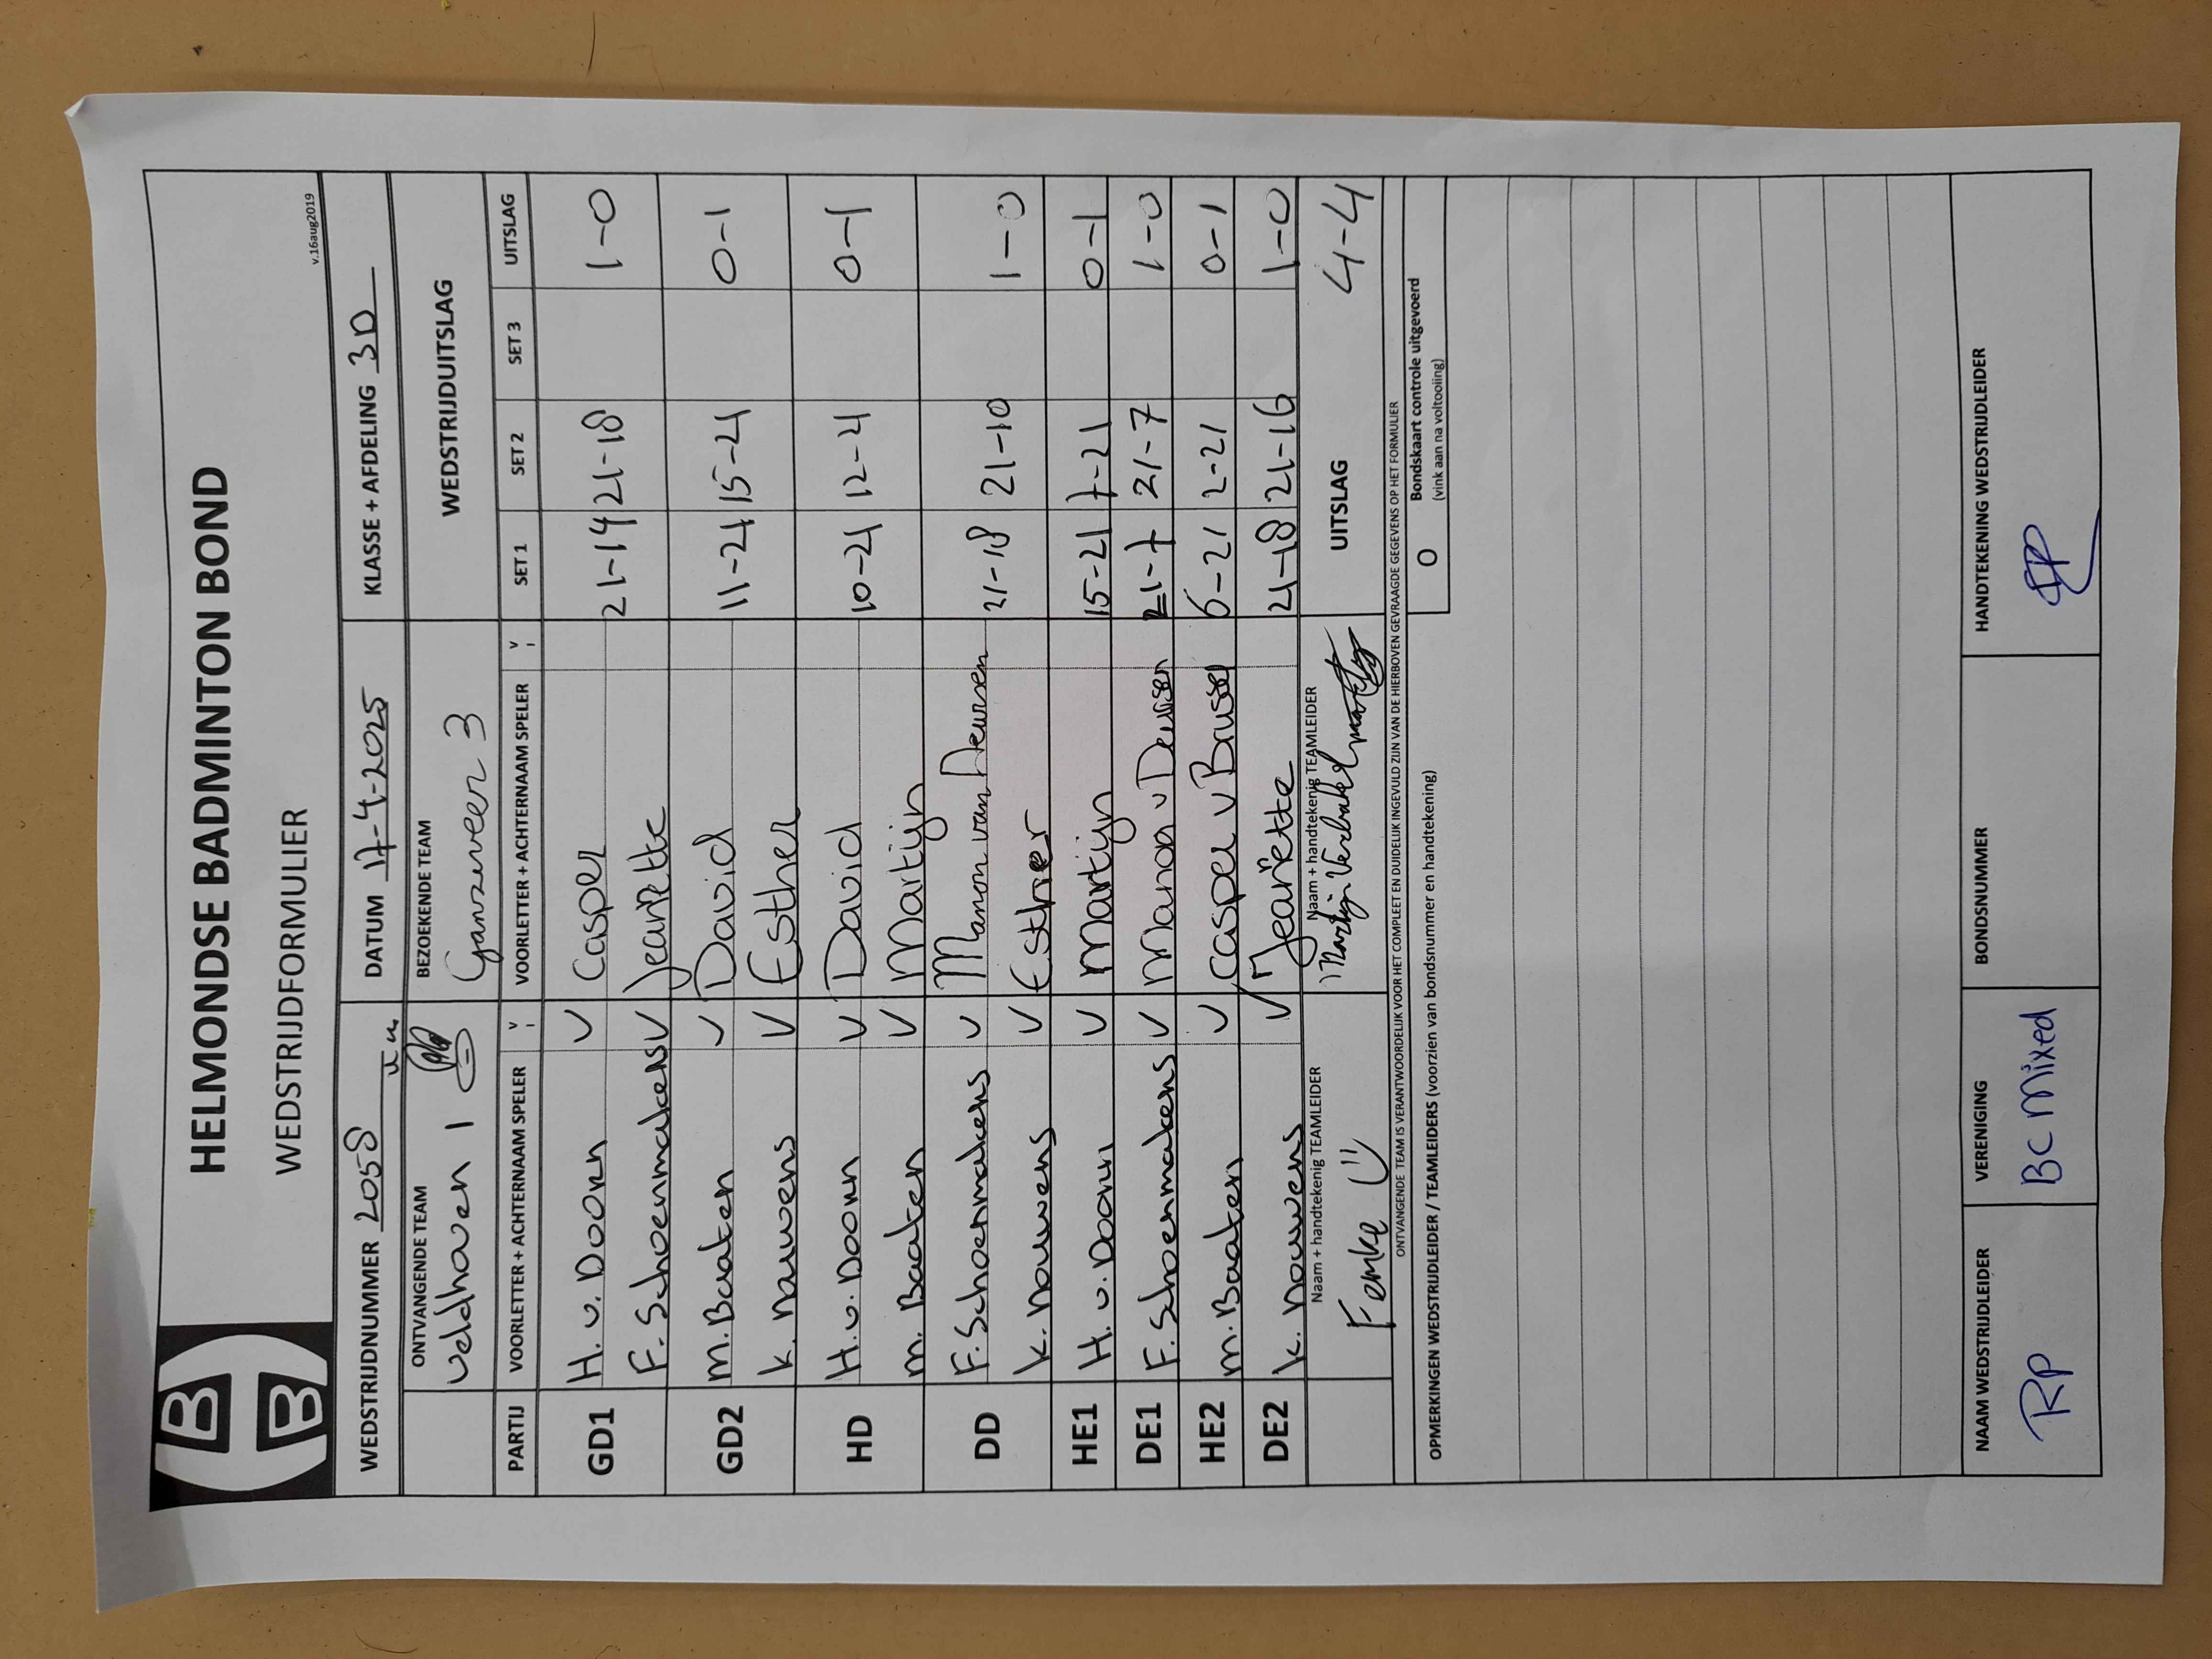 HELMONDSE BADMINTON BOND
WEDSTRIJDFORMULIER
v.16aug2019
WEDSTRIJDNUMMER 2058 DATUM 17-4-2025 KLASSE + AFDELING 3D
ONTVANGENDE TEAM BEZOEKENDE TEAM WEDSTRIJDUITSLAG
Veldhoven 1 Ganzeveer 3
PARTIJ VOORLETTER + ACHTERNAAM SPELER V VOORLETTER + ACHTERNAAM SPELER V SET 1 SET 2 SET 3 UITSLAG
GD1 H. v. Doorn V Casper 21-14 21-18 1-0
F. Schoenmakers V Jeanette
GD2 M. Baaten V David 11-21 15-21 0-1
K. Nouwens V Esther
HD H. v. Doorn V David 10-21 12-21 0-1
M. Baaten V Martijn
DD F. Schoenmakers V Manon van Deursen 21-18 21-10 1-0
K. Nouwens V Esther
HE1 H. v. Doorn V Martijn 15-21 7-21 0-1
DE1 F. Schoenmakers V Manon v Deursen 21-7 21-7 1-0
HE2 M. Baaten V Casper v Brussel 6-21 2-21 0-1
DE2 K. Nouwens V Jeanette 21-18 21-16 1-0
Naam + handtekenig TEAMLEIDER Naam + handtekenig TEAMLEIDER UITSLAG 4-4
Femke Martijn Verbakel
ONTVANGENDE TEAM IS VERANTWOORDELIJK VOOR HET COMPLEET EN DUIDELIJK INGEVULD ZIJN VAN DE HIERBOVEN GEVRAAGDE GEGEVENS OP HET FORMULIER
OPMERKINGEN WEDSTRIJDLEIDER / TEAMLEIDERS (voorzien van bondsnummer en handtekening)
O Bondskaart controle uitgevoerd
(vink aan na voltooiing)
NAAM WEDSTRIJDLEIDER VERENIGING BONDSNUMMER HANDTEKENING WEDSTRIJDLEIDER
RP BC Mixed